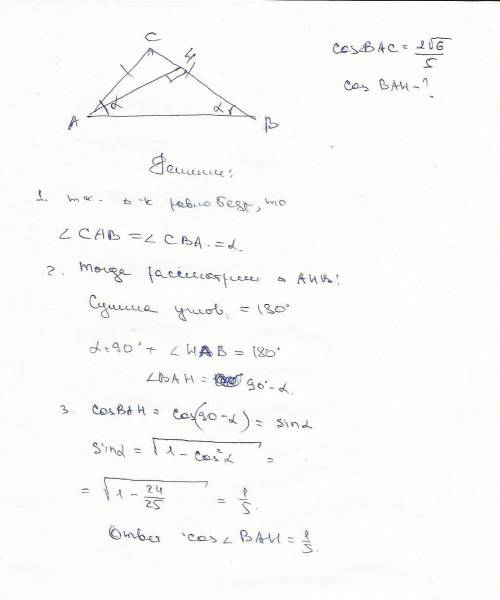 C
H
A
α
α
B
cos BAC = 2√6/5
cos BAH - ?
Решение:
1. т.к. Δ-к равнобедр, то
∠CAB = ∠CBA = α.
2. Тогда рассмотрим Δ AHB:
Сумма углов = 180°
α + 90° + ∠HAB = 180°
∠BAH = 90° - α.
3. cos BAH = cos(90 - α) = sin α
sin α = √1 - cos²α =
= √1 - 24/25 = 1/5.
Ответ: cos ∠ BAH = 1/5.